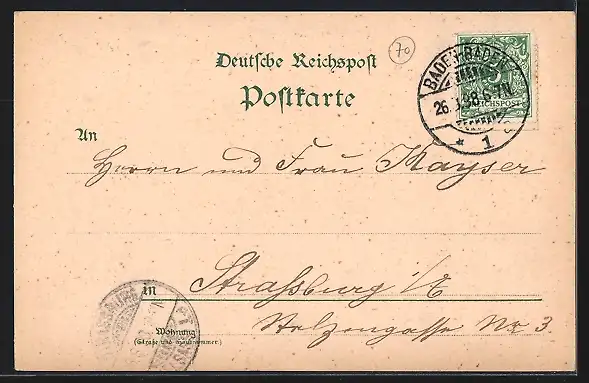 70
Deutsche Reichspost
Postkarte
BADEN-BADEN
26. 98. 6-7N.
* 1
REICHSPOST
An
Herrn und Frau Mayser
in Straßburg i/E
Wohnung
(Straße und Hausnummer.)
Stelzengasse No. 3.